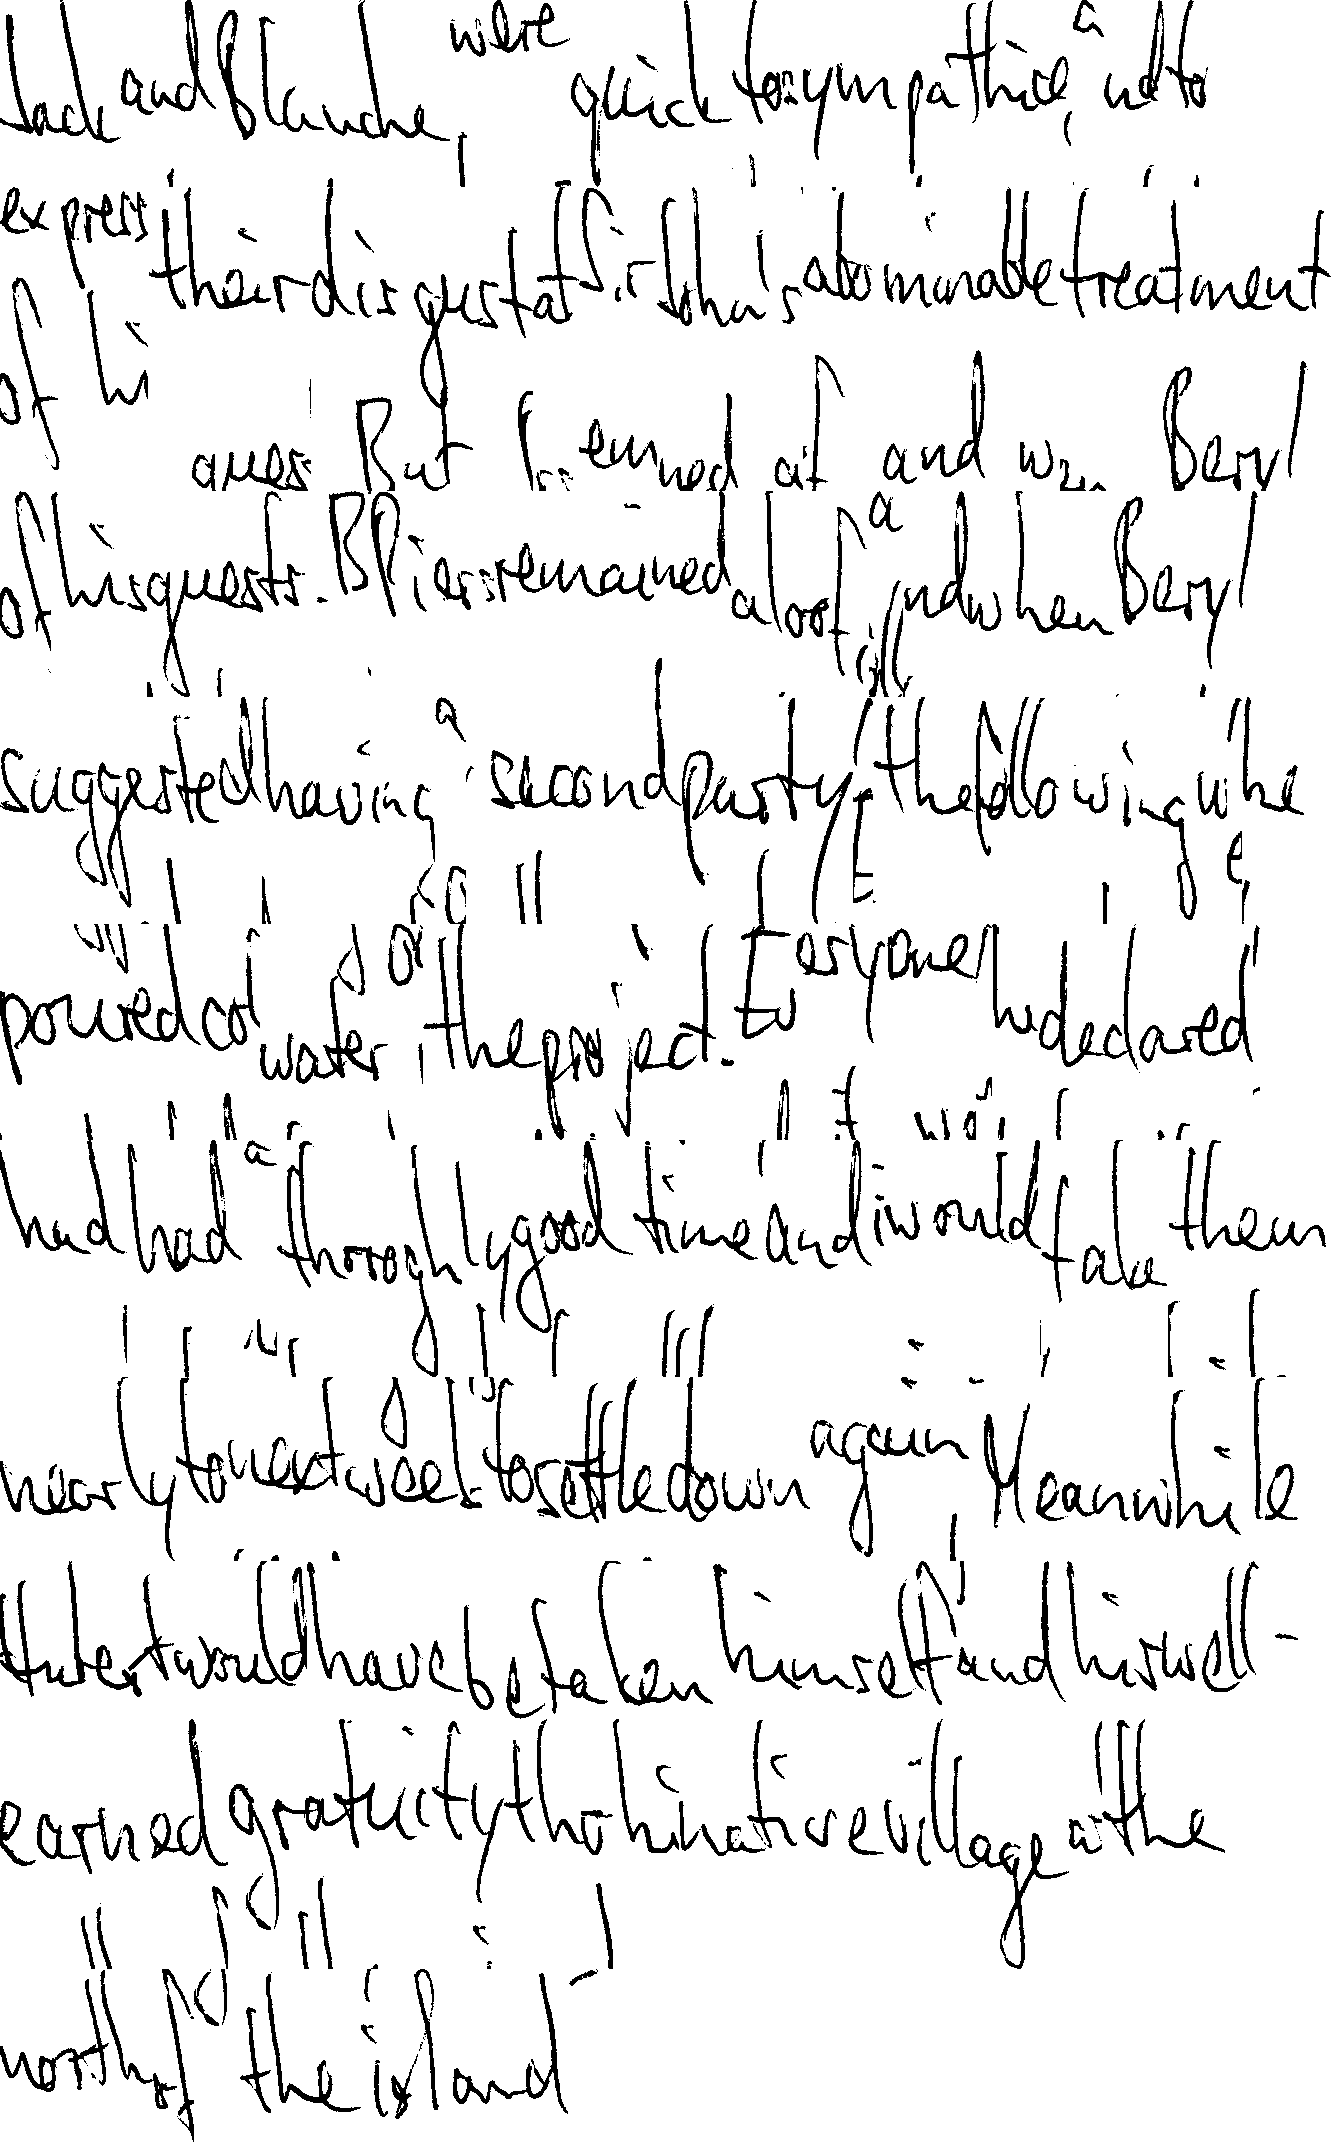 Jack and Blanche, were quick to sympathise, and to
express their disgust at Sir John's abominable treatment
of his guests. But Piers remained aloof, and when Beryl
suggested having a second party the following he
poured cold water, the project. Everyone he declared
had had a thoroughly good time and it would take them
nearly to next week to settle down again, Meanwhile
would have betaken himself and his well-
earned gratuity to his native village at the
north of the island